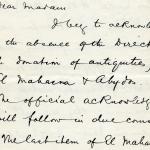 Dear Madam
I beg to acknowle
the absence of the Direct
donation of antiquities,
El Mahasna & Abydos.
The official acknowledg
will follow in due cours
The last item of El Mahas